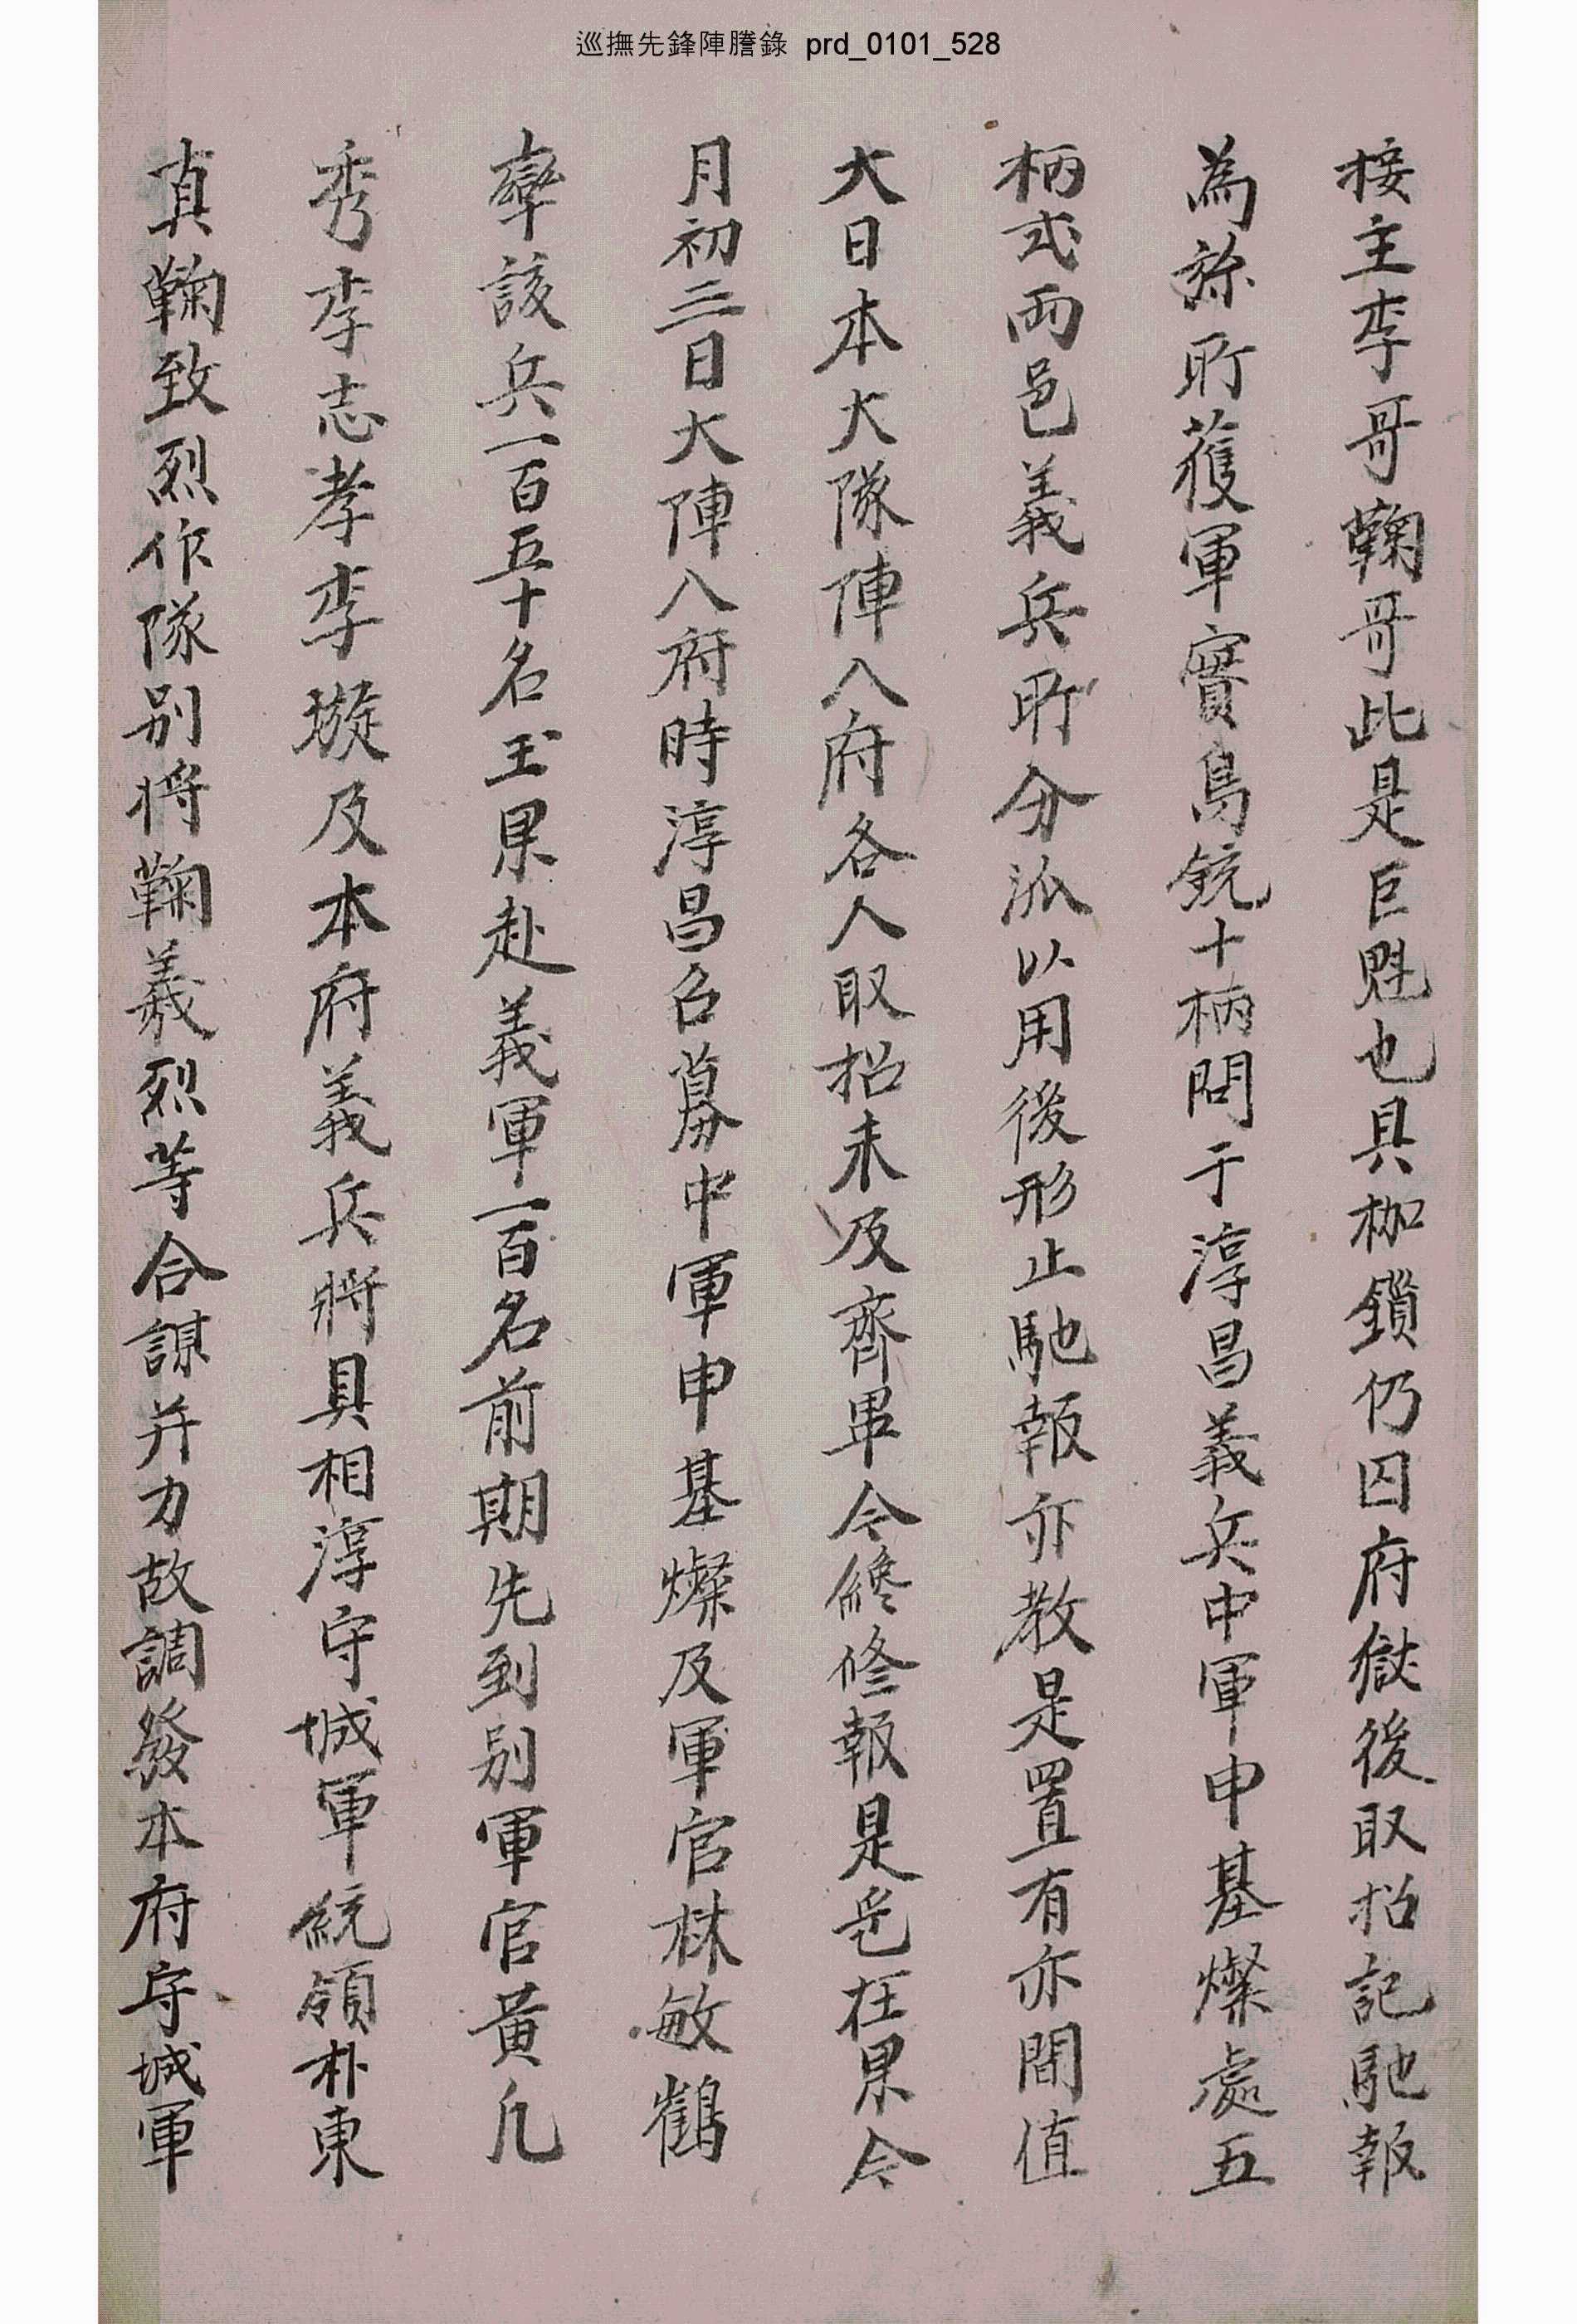 巡撫先鋒陣謄錄 prd_0101_528
接主李哥鞠哥此是巨魁也具枷鎖仍囚府獄後取招記馳報
為旀所獲軍實鳥銃十柄問于淳昌義兵中軍申基燦處五
柄式兩邑義兵所分派以用後形止馳報亦敎是置有亦間值
大日本大隊陣入府各人取招未及齊畢今纔修報是乎在果今
月初三日大陣入府時淳昌召募中軍申基燦及軍官林敏鶴
率該兵一百五十名玉果赴義軍一百名前期先到別軍官黃凡
秀李志孝李璇及本府義兵將具相淳守城軍統領朴東
眞鞠致烈作隊別將鞠義烈等合謀幷力故調發本府守城軍